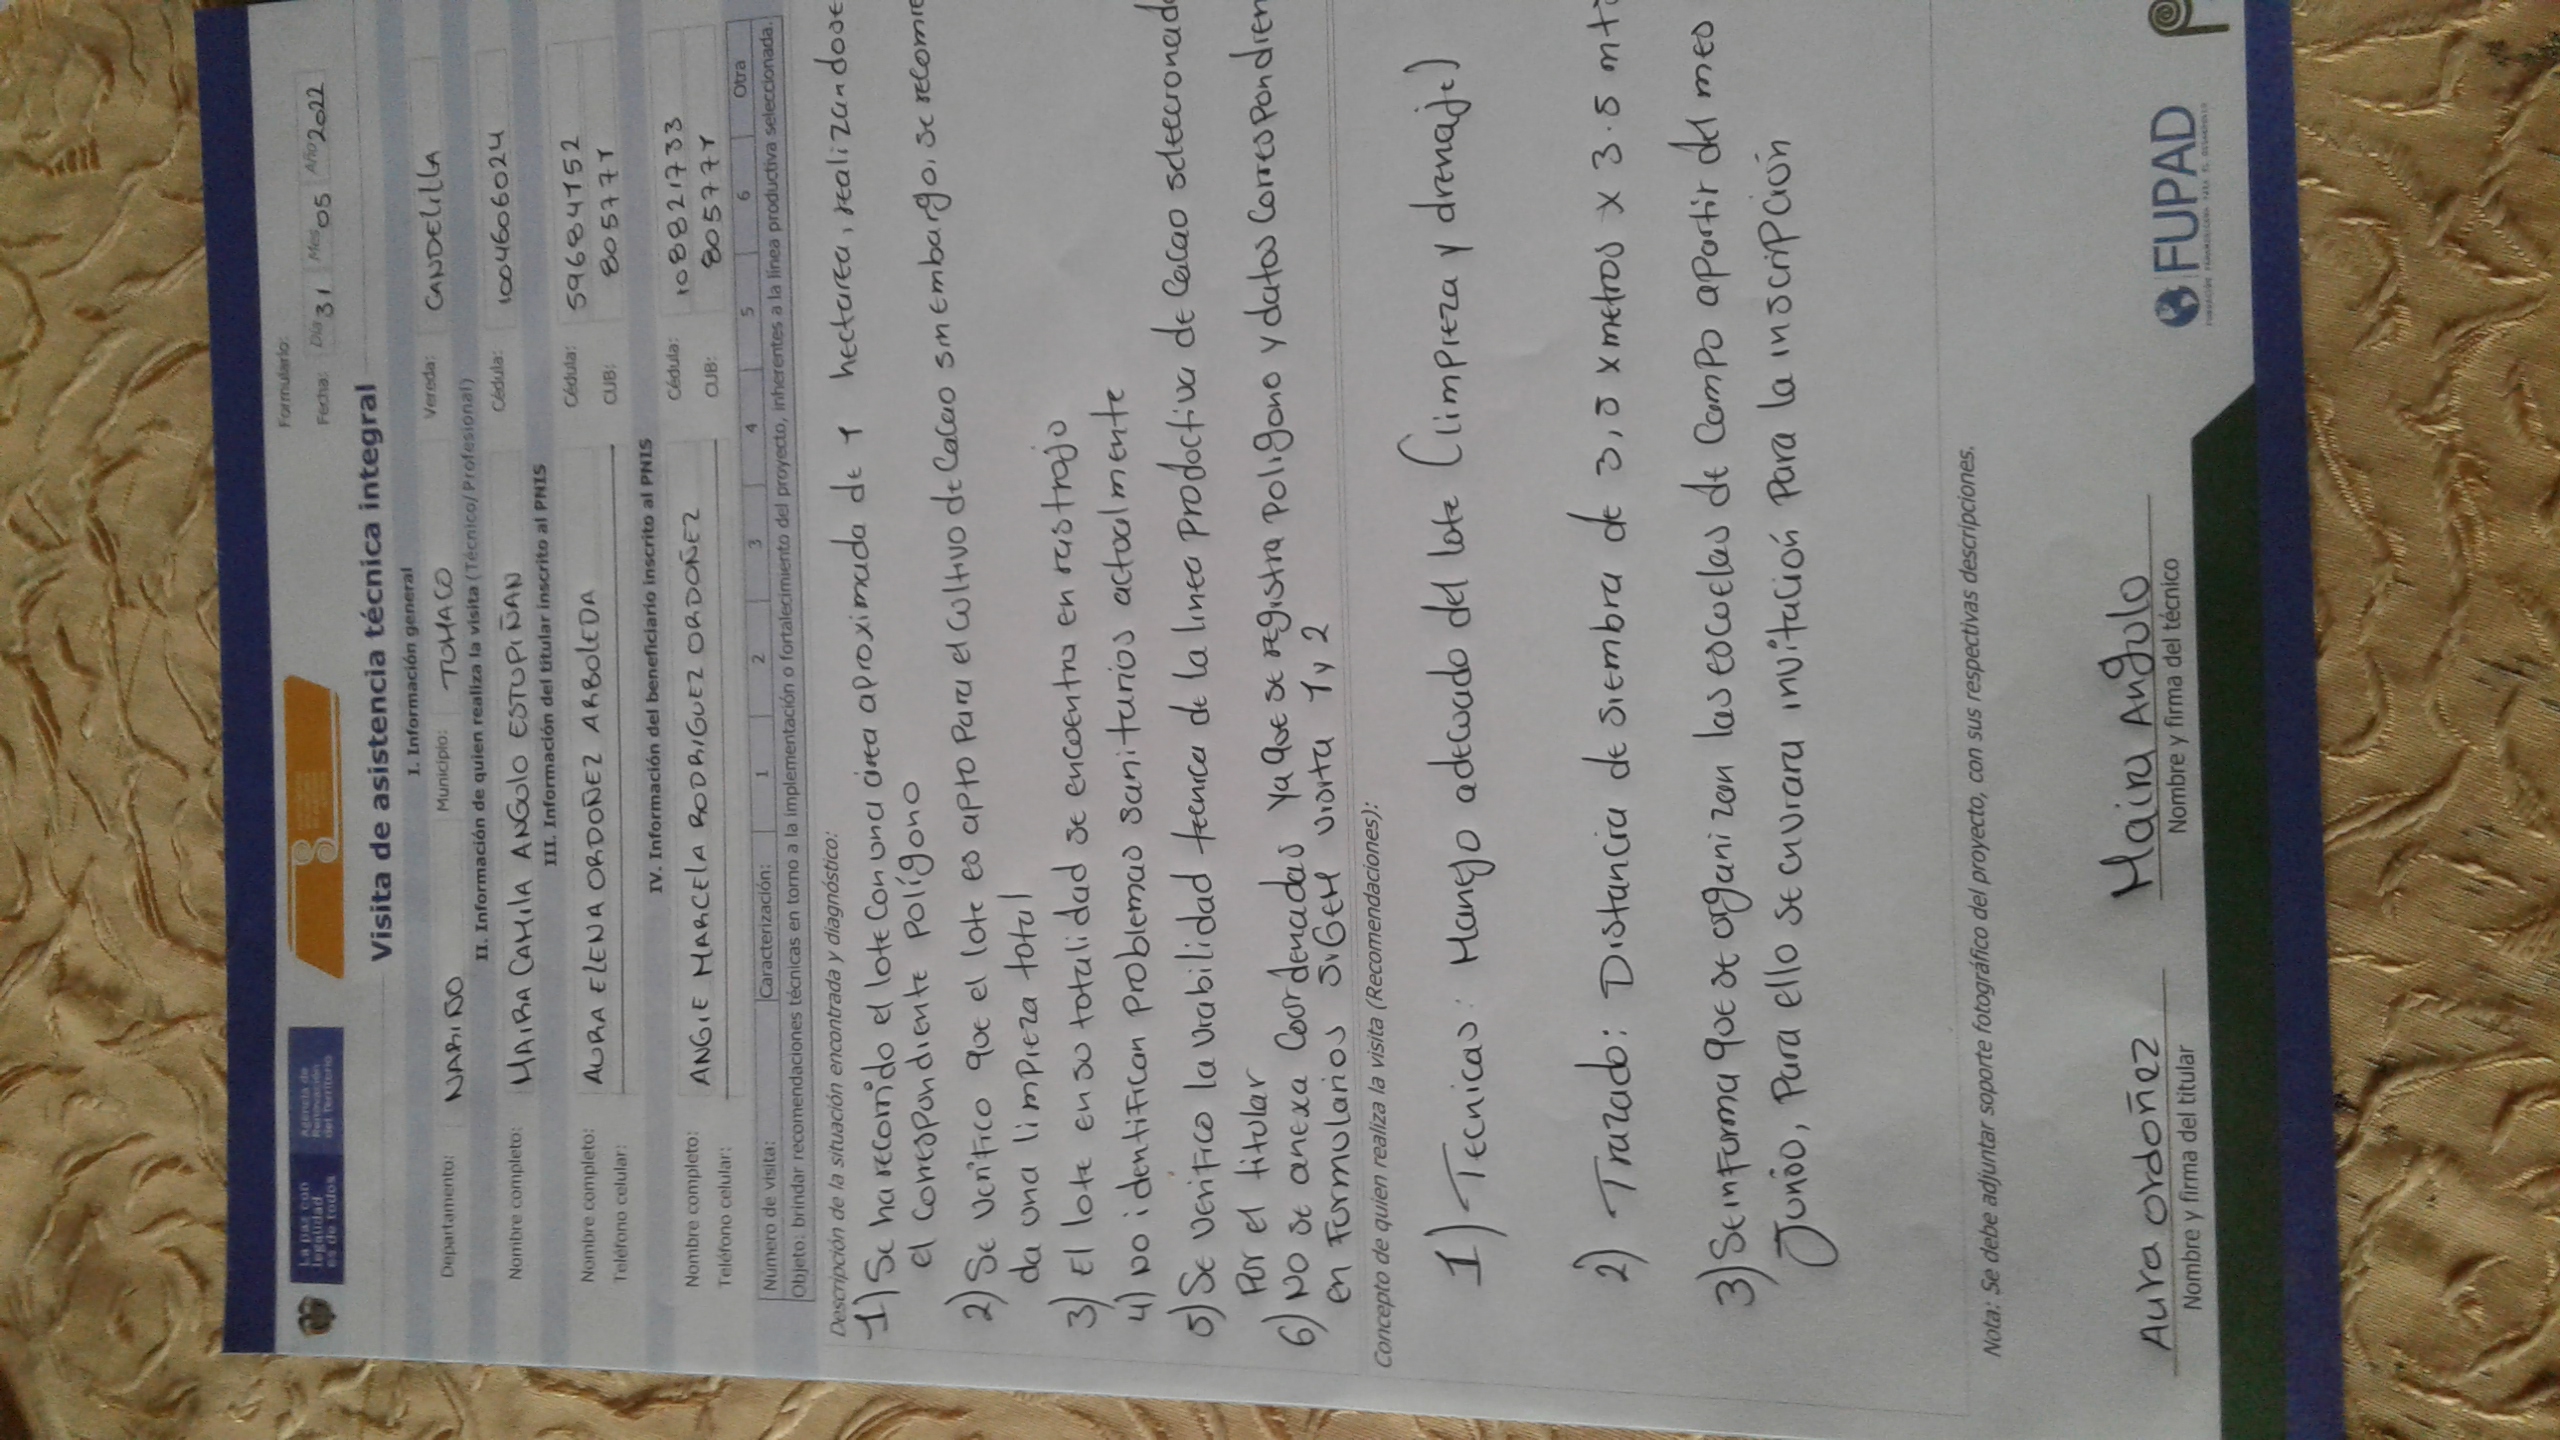 La paz con
legalidad
es de todos
Agencia de
Renovación
del Territorio
Formulario:
Fecha: Día 31 Mes 05 Año 2022
Visita de asistencia técnica integral
I. Información general
Departamento: NARIÑO Municipio: TUMACO Vereda: CANDELILLA
II. Información de quien realiza la visita (Técnico/Profesional)
Nombre completo: MAIRA CAMILA ANGULO ESTUPIÑAN Cédula: 1004606024
III. Información del titular inscrito al PNIS
Nombre completo: AURA ELENA ORDOÑEZ ARBOLEDA Cédula: 59684152
Teléfono celular: CUB: 805771
IV. Información del beneficiario inscrito al PNIS
Nombre completo: ANGIE MARCELA RODRIGUEZ ORDOÑEZ Cédula: 1088821733
Teléfono celular: CUB: 805771
Número de visita: Caracterización: 1 2 3 4 5 6 Otra
Objeto: brindar recomendaciones técnicas en torno a la implementación o fortalecimiento del proyecto, inherentes a la línea productiva seleccionada.
Descripción de la situación encontrada y diagnóstico:
1) Se ha recorrido el lote con una área aproximada de 1 hectarea, realizandose
el correspondiente polígono
2) Se verifico que el lote es apto para el cultivo de Cacao sin embargo, se recomie
da una limpieza total
3) El lote en su totalidad se encuentra en rastrojo
4) No identifican problemas sanitarios actualmente
5) Se verifico la viabilidad tecnica de la linea productiva de Cacao seleccionado
por el titular
6) No se anexa Coordenadas ya que se registra poligono y datos correspondien
en Formularios SIGEM visita 1 y 2
Concepto de quien realiza la visita (Recomendaciones):
1) Tecnicas: Manejo adecuado del lote (limpieza y drenaje)
2) Trazado: Distancia de siembra de 3,5 x metros x 3.5 mt
3) Se informa que se organizan las escuelas de campo apartir del mes
Junio, para ello se enviara invitación para la inscripción
Nota: Se debe adjuntar soporte fotográfico del proyecto, con sus respectivas descripciones.
Aura ordoñez Maira Angulo
Nombre y firma del titular Nombre y firma del técnico
FUPAD